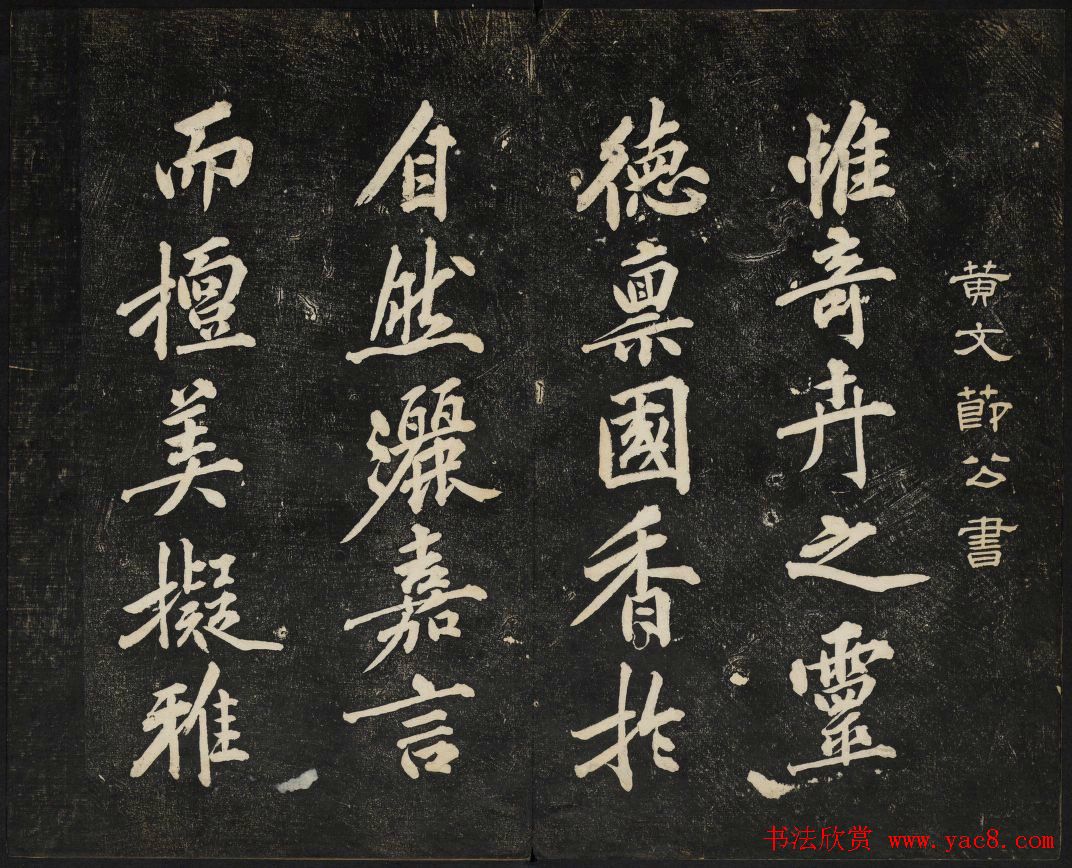 黄文節公書
惟奇卉之靈
德稟國香於
自然灑嘉言
而擅美擬雅
书法欣赏 www.yac8.com